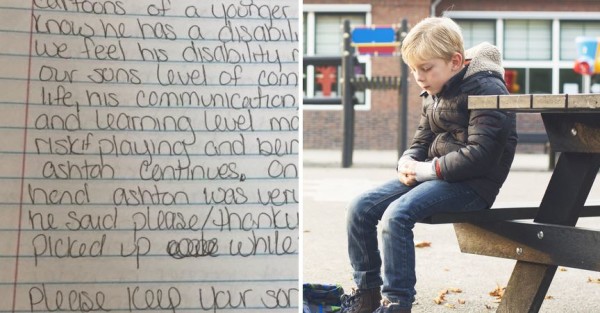 cartoons of a younger
know he has a disabili
we feel his disability
our sons level of com
life, his communication,
and learning level ma
risk if playing and bein
ashton continues. On
hand ashton was ver
he said please/thanky
picked up while
please keep your son